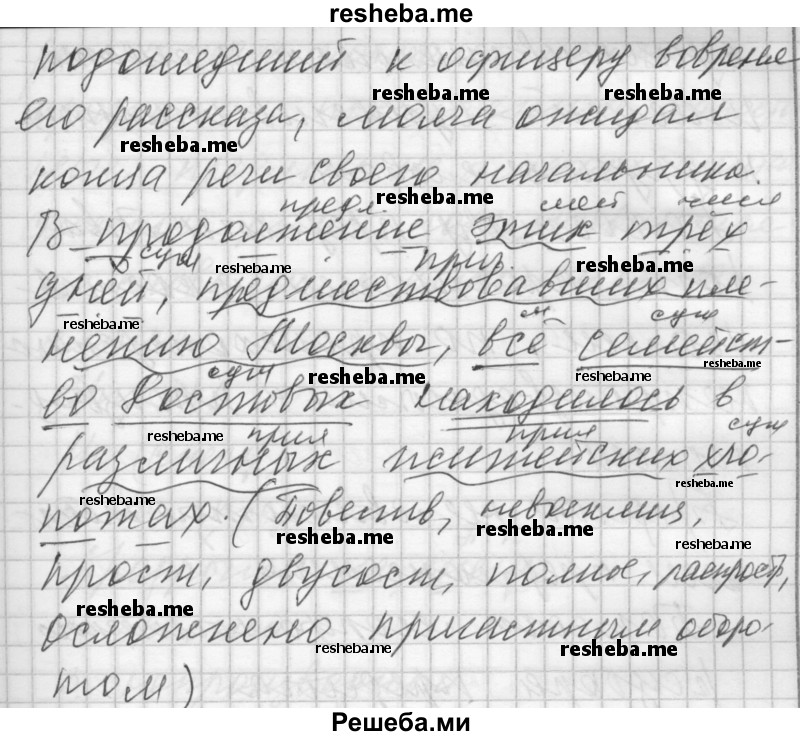 resheba.me
подошедший к офицеру вовремя
resheba.me resheba.me
его рассказа, молча ожидал
resheba.me
конца речи своего начальника.
resheba.me
предл. мест числ
В продолжение этих трёх
сущ прич.
resheba.me resheba.me
дней, предшествовавших пле-
resheba.me
м сущ
нению Москвы, всё семейст-
resheba.me
сущ resheba.me resheba.me
во Ростовых находилось в
resheba.me прил прил сущ
различных житейских хло-
resheba.me resheba.me
потах. (Повеств, невосклиц,
resheba.me resheba.me
resheba.me
прост, двусост, полное, распростр,
resheba.me
осложнено причастным оборо-
resheba.me resheba.me
том)
Решеба.ми